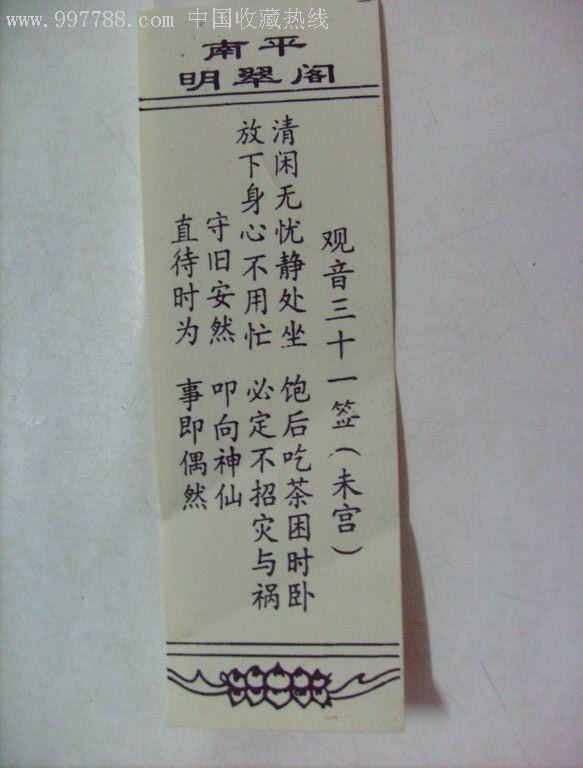 www.997788.com 中国收藏热线
南平
明翠阁
观音三十一签（未宫）
清闲无忧静处坐 饱后吃茶困时卧
放下身心不用忙 必定不招灾与祸
守旧安然 叩向神仙
直待时为 事即偶然